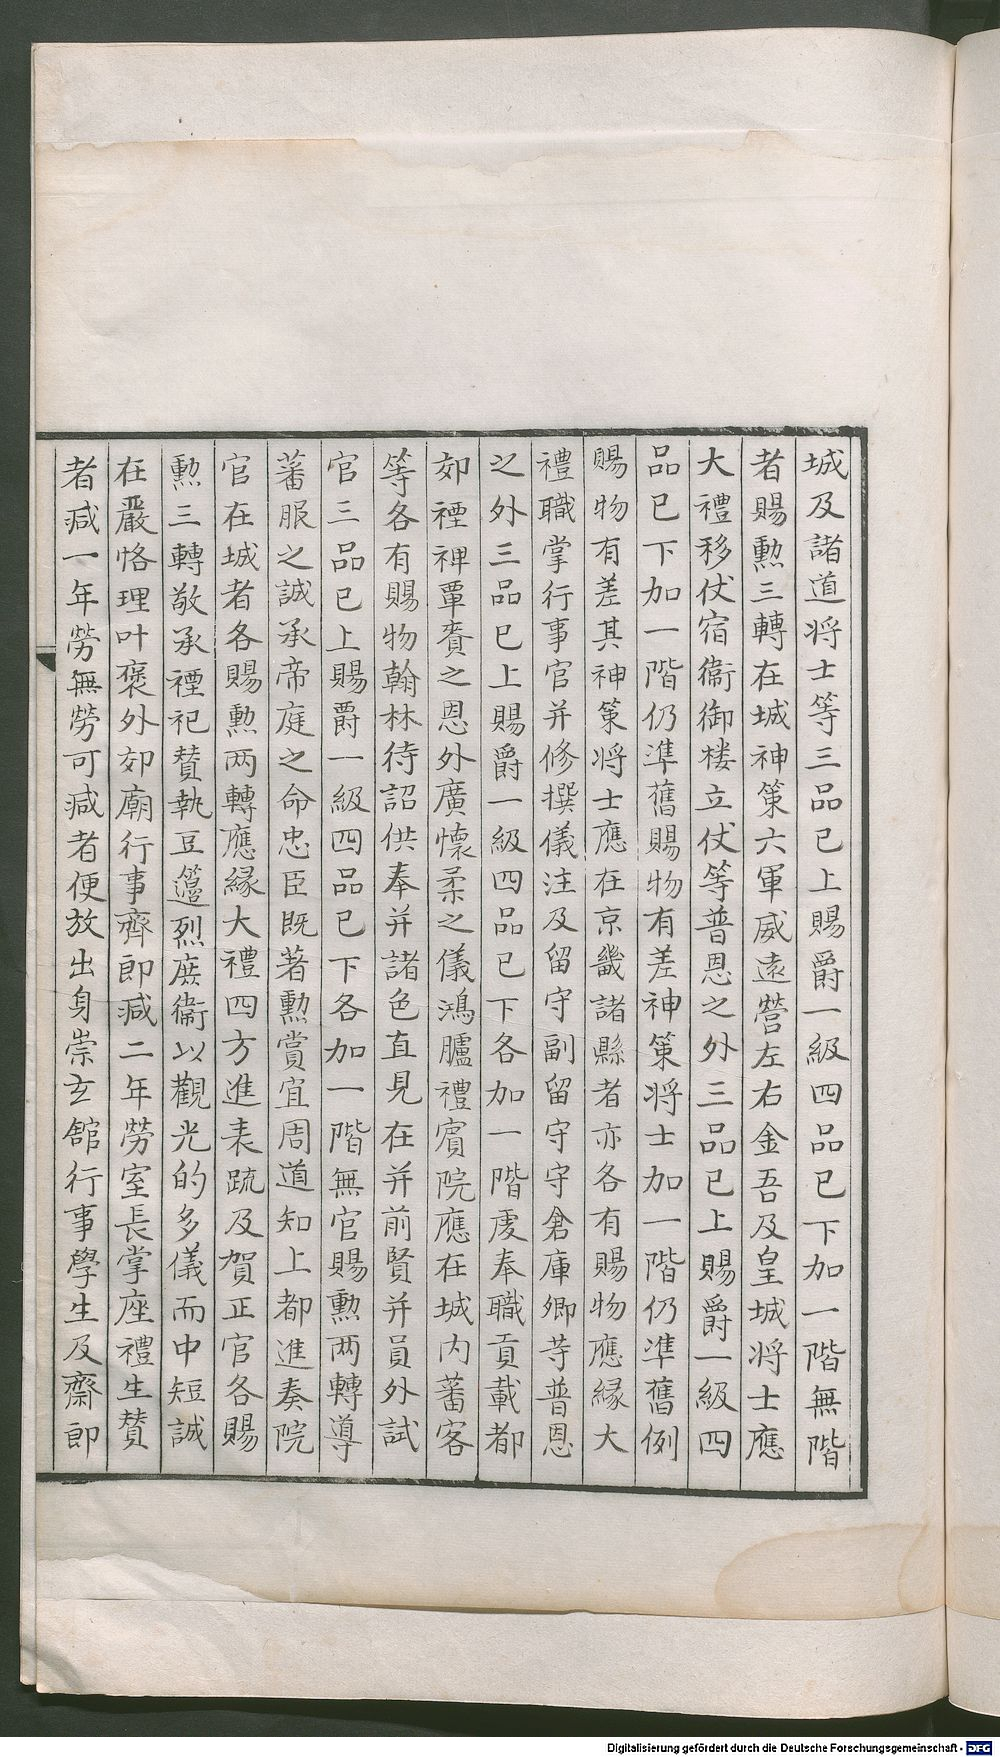 城及諸道将士等三品已上賜爵一級四品已下加一階無階
者賜勲三轉在城神策六軍威遠營左右金吾及皇城将士應
大禮移仗宿衞御楼立仗等普恩之外三品已上賜爵一級四
品已下加一階仍準舊賜物有差神策将士加一階仍準舊例
賜物有差其神策将士應在京畿諸縣者亦各有賜物應縁大
禮職掌行事官并修撰儀注及留守副留守守倉庫卿等普恩
之外三品已上賜爵一級四品已下各加一階虔奉職貢載都
郊禋禆覃賚之恩外廣懷柔之儀鴻臚禮賓院應在城内蕃客
等各有賜物翰林待詔供奉并諸色直見在并前賢并員外試
官三品已上賜爵一級四品已下各加一階無官賜勲两轉導
蕃服之誠承帝庭之命忠臣既著勲賞宜周道知上都進奏院
官在城者各賜勲两轉應縁大禮四方進表䟽及賀正官各賜
勲三轉敬承禋祀賛執豆籩烈庶衞以觀光的多儀而中短誠
在嚴恪理叶褒外郊廟行事齊郎减二年勞室長掌座禮生賛
者减一年勞無勞可减者便放出身崇玄舘行事學生及齋郎
Digitalisierung gefördert durch die Deutsche Forschungsgemeinschaft - DFG